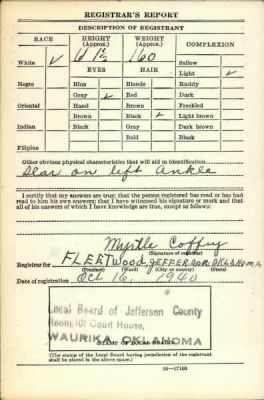 REGISTRAR'S REPORT
DESCRIPTION OF REGISTRANT
RACE HEIGHT (Approx.) WEIGHT (Approx.) COMPLEXION
White ✓ 6 1½ 160 Sallow
EYES HAIR Light ✓
Negro Blue Blonde Ruddy
Gray ✓ Red Dark
Oriental Hazel Brown Freckled
Brown Black ✓ Light brown
Indian Black Gray Dark brown
Bald Black
Filipino
Other obvious physical characteristics that will aid in identification
Scar on left Ankle
I certify that my answers are true; that the person registered has read or has had
read to him his own answers; that I have witnessed his signature or mark and that
all of his answers of which I have knowledge are true, except as follows:
Myrtle Coffey
(Signature of registrar)
Registrar for FLEETWOOD, JEFFERSON OKLAHOMA
(Precinct) (Ward) (City or county) (State)
Date of registration Oct 16, 1940
Local Board of Jefferson County
Room 101 Court House,
WAURIKA, OKLAHOMA
(STAMP OF LOCAL BOARD)
(The stamp of the Local Board having jurisdiction of the registrant
shall be placed in the above space.)
16—17105